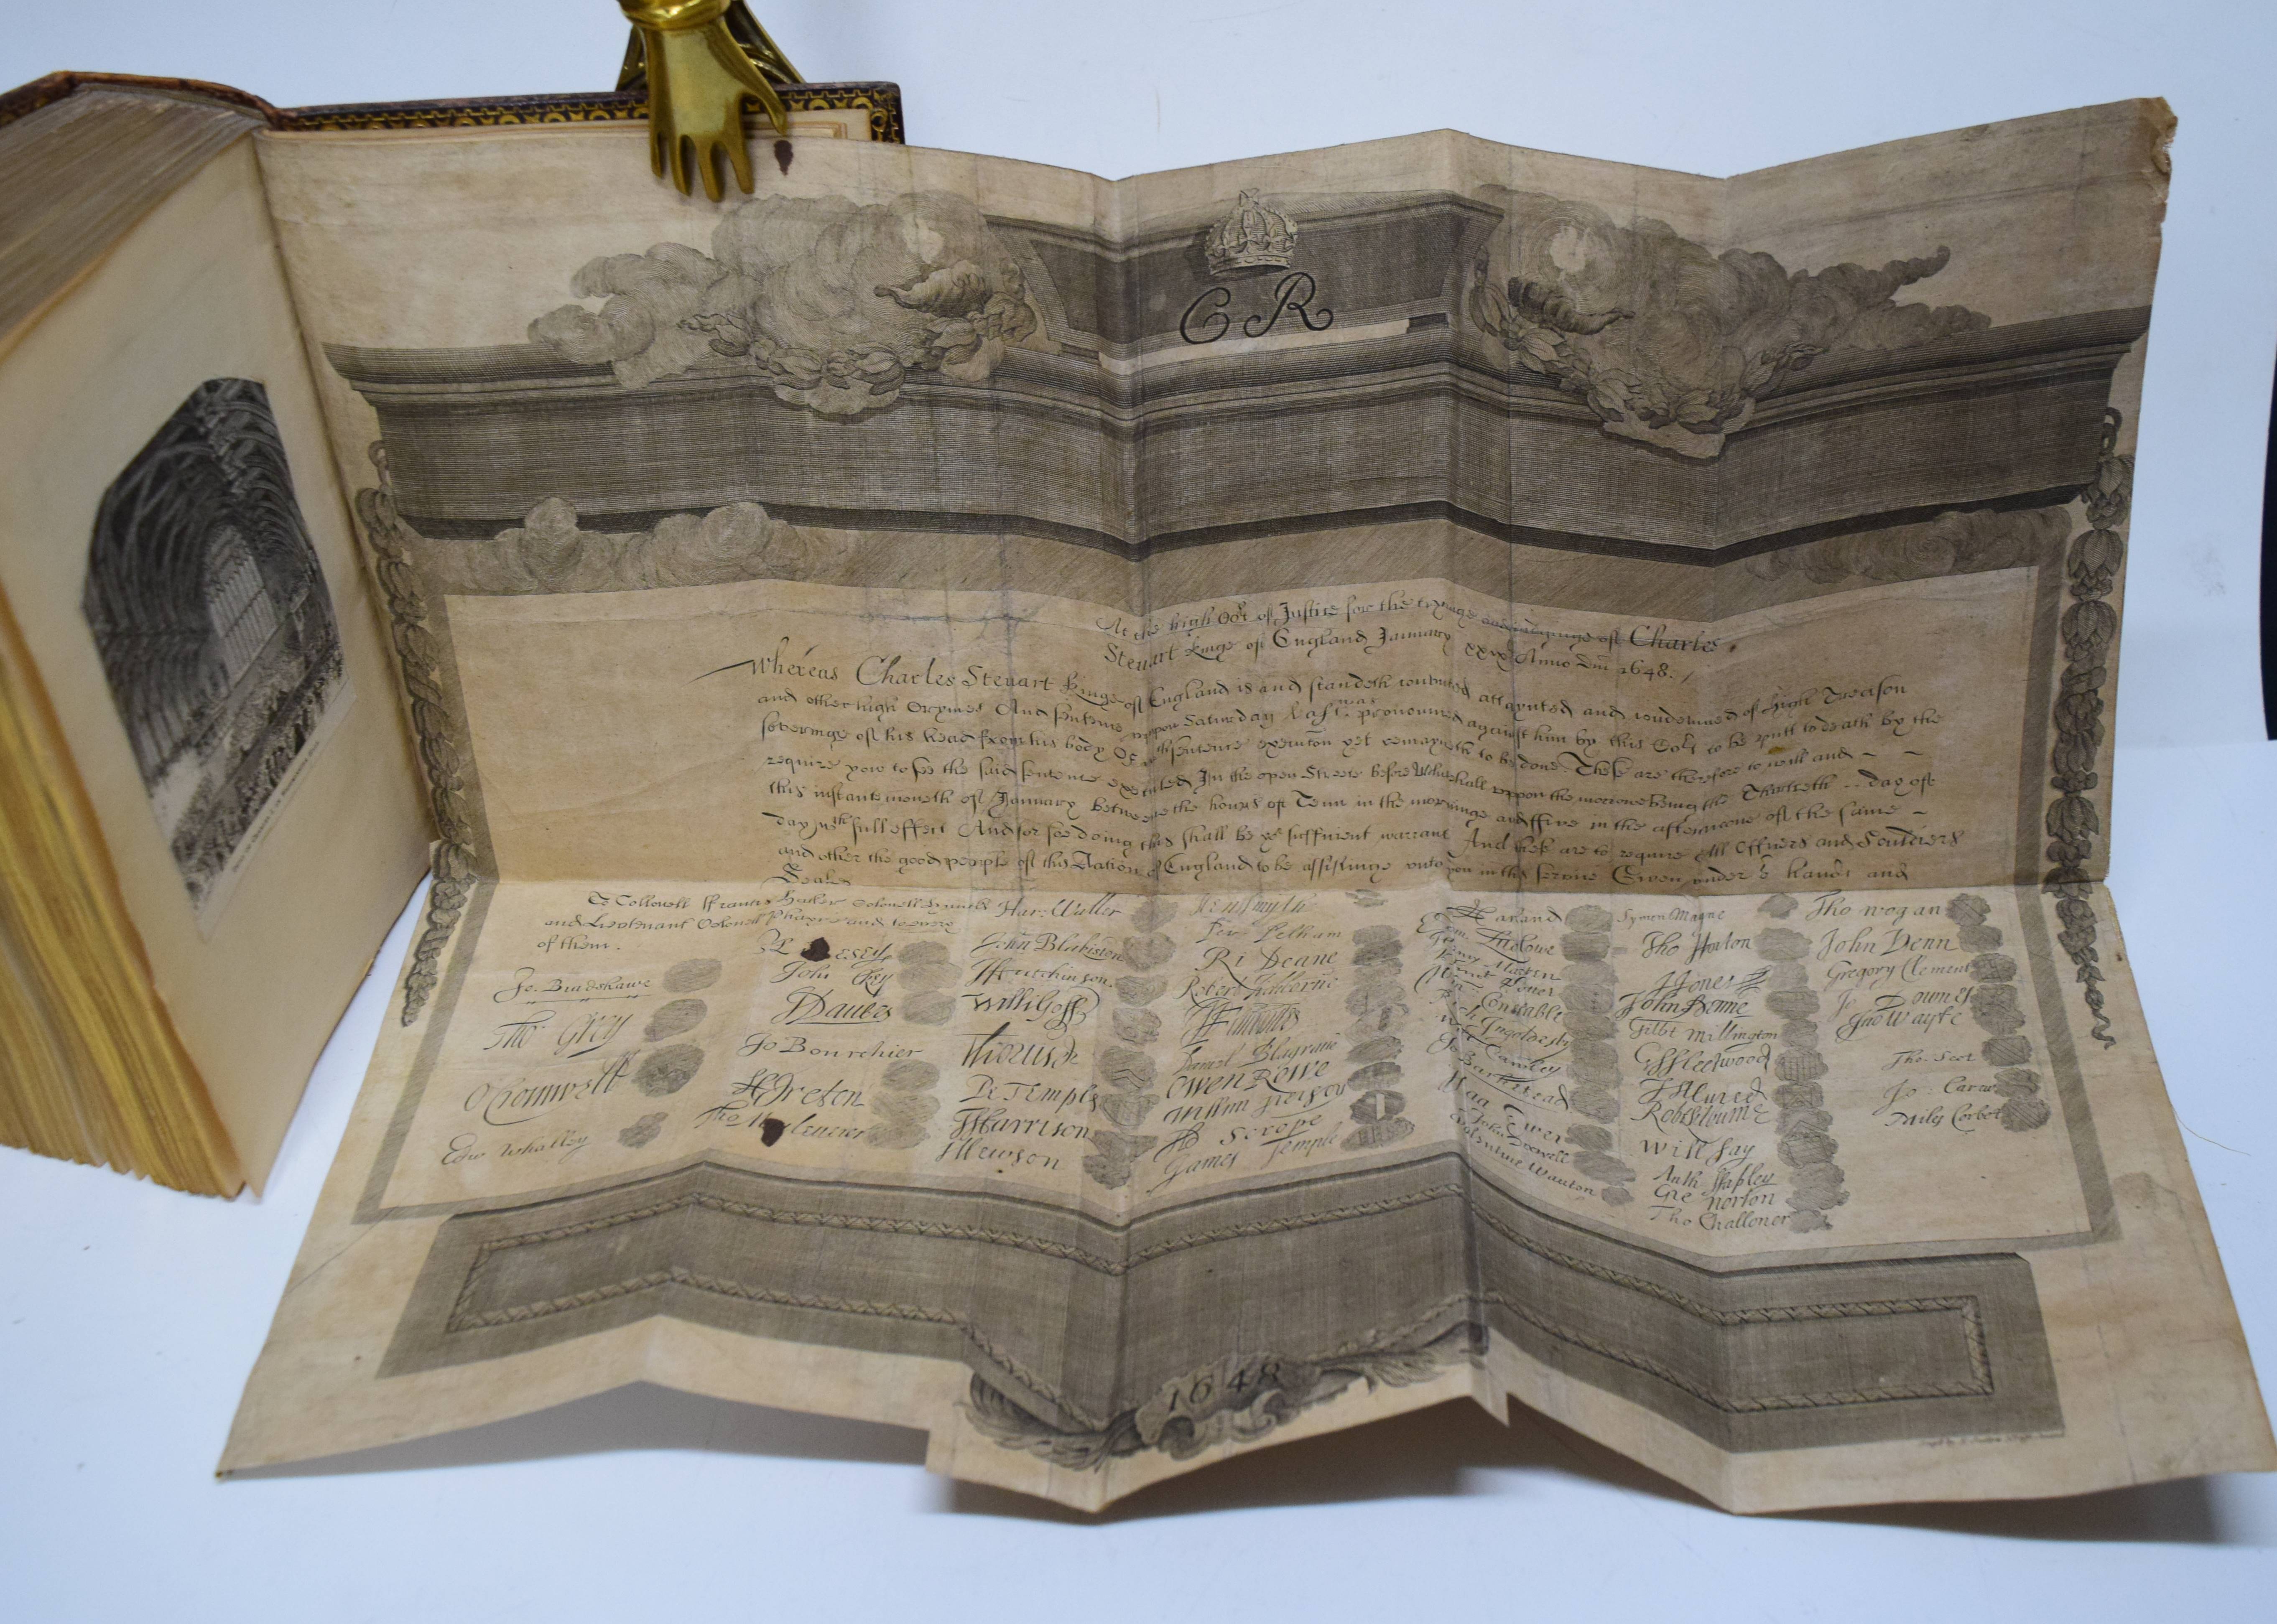 C R
At the high Cort of Justice for the tryinge and iudginge of Charles
Steuart Kinge of England January xxixth Anno Dni 1648.
Whereas Charles Steuart Kinge of England is and standeth convicted attaynted and condemned of High Treason
and other high Crymes And sentence uppon Saturday last was pronounced against him by this Cort to be putt to death by the
severinge of his head from his body Of wch sentence execucon yet remayneth to be done. These are therefore to will and
require you to see the said sentence executed In the open Streete before Whitehall uppon the morrowe being the Thirtieth day of
this instante moneth of January betweene the hours of Tenn in the morninge and ffive in the afternoone of the same
day wth full effect And for soe doing this shall be yor sufficient warrant And these are to require All Officers and Souldiers
and other the good people of this Nation of England to be assistinge unto you in this service Given under or hands and
Seales
To Collonell ffrancis Hacker Colonell Huncks
and Lieutenant Colonell Phayre and to every
of them.
Jo. Bradshawe
Tho Grey
O Cromwell
Edw Whalley
John
J Danvers
Jo Bourchier
H Ireton
Tho
Har: Waller
John Blakiston
J Hutchinson
Willi Goff
Pe Temple
T Harrison
J Hewson
Hen Smyth
Per Pelham
Ri Deane
Robert
Owen Rowe
William
Ad Scrope
James Temple
Edm Ludlowe
Constable
Ri Ingoldesby
Will Cawley
Jo Barkstead
Isaa Ewer
John
Valentine Wauton
Symon Mayne
Tho Horton
J Jones
John
Gilbt Millington
G Fleetwood
J Alured
Robt
Will Say
Anth Stapley
Gre Norton
Tho Challoner
Tho Wogan
John Venn
Gregory Clement
Jo Downes
Tho Wayte
Tho. Scot
Jo Carew
Miles Corbet
1648